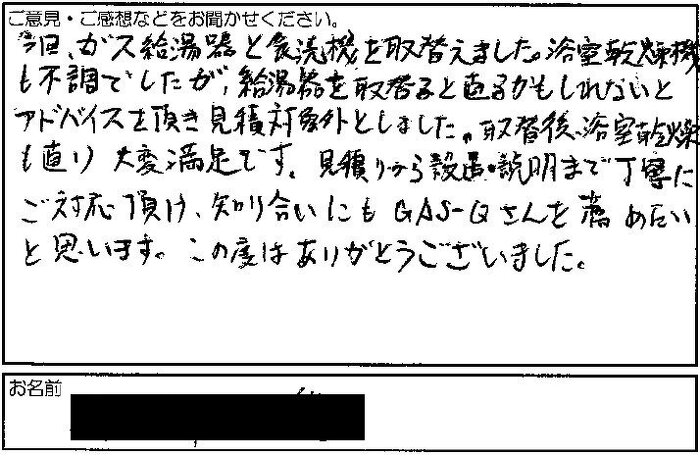 ご意見・ご感想などをお聞かせください。
今回、ガス給湯器と食洗機を取替えました。浴室乾燥機
も不調でしたが、給湯器を取替ると直るかもしれないと
アドバイスを頂き見積対象外としました。取替後、浴室乾燥
も直り大変満足です。見積りから設置・説明まで丁寧に
ご対応頂け、知り合いにもGAS-Qさんを薦めたい
と思います。この度はありがとうございました。
お名前